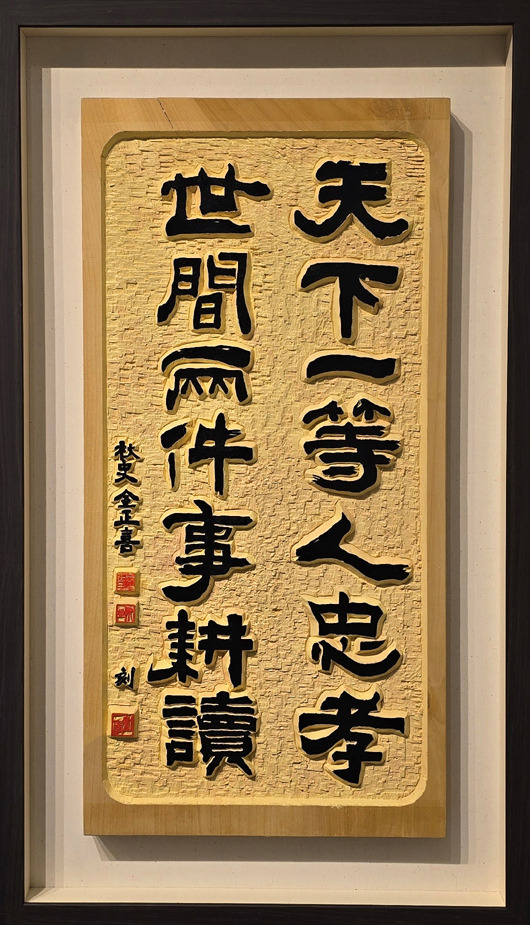 天下一等人忠孝
世間兩件事耕讀
秋史 金正喜
刻